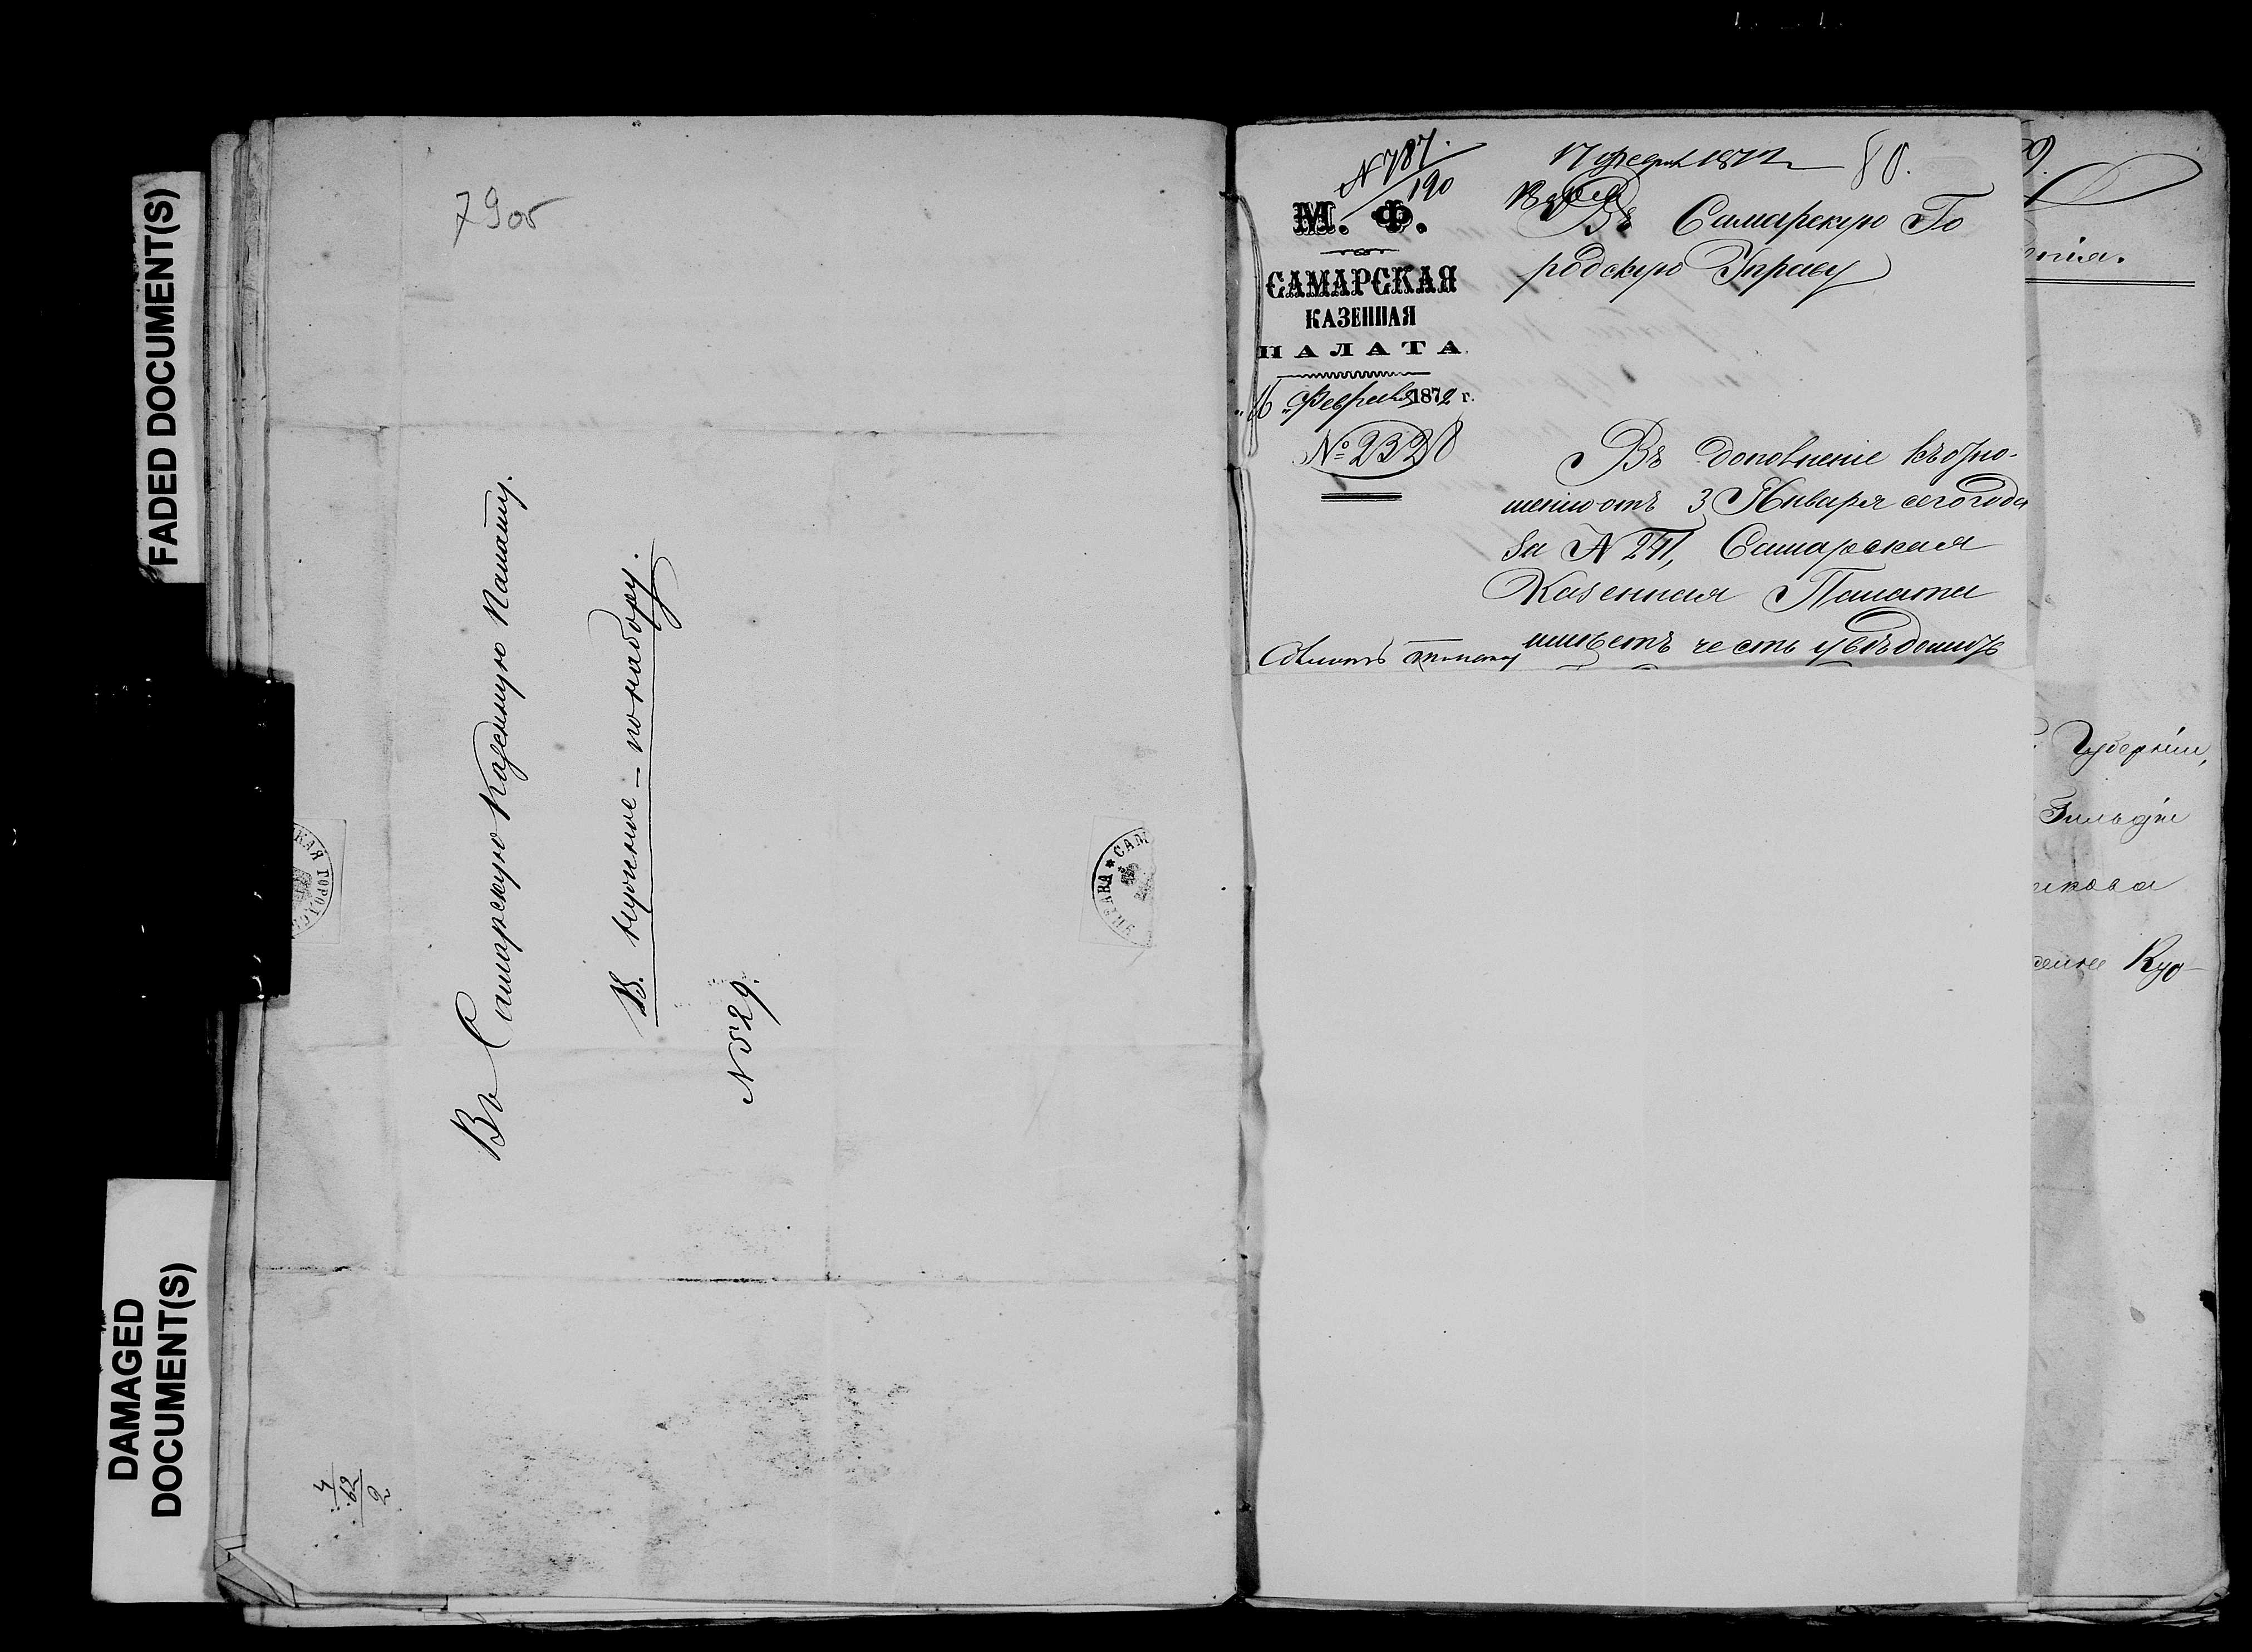 FADED DOCUMENT(S)
DAMAGED
DOCUMENT(S)
79об
Въ Самарскую Казенную Палату.
В. нужное - по набору.
№ 529.
КАЯ ГОРОДС
УПРАВА * САМ
4
62
2
N 787.
190
М. Ф.
САМАРСКАЯ
КАЗЕННАЯ
ПАЛАТА.
"16" Февраля 1872 г.
№ 2328
17 февр 1872
80.
Въ Самарскую Го
родскую Управу
Въ дополненіе къ отно-
шенію отъ 3 Января сего года
за N 241, Самарская
Казенная Палата
имѣетъ честь увѣдомить
9.
нія.
Губерніи,
Гильдіи